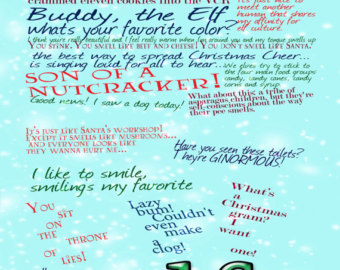 crammed eleven cookies into the VCR
It's just like to meet
another human that shares
my affinity for
elf culture.
Buddy, the Elf
whats your favorite color?
I think you're really beautiful and I feel really warm when I'm around you and my tongue swells up
YOU STINK. YOU SMELL LIKE BEEF AND CHEESE! YOU DON'T SMELL LIKE SANTA.
the best way to spread Christmas Cheer...
is singing loud for all to hear...
We elves try to stick to
the four main food groups:
candy, candy canes, candy
corns and syrup.
SON OF A
NUTCRACKER!
Good news! I saw a dog today!
What about this: a tribe of
asparagus children, but they're
self-conscious about the way
their pee smells.
IT'S JUST LIKE SANTA'S WORKSHOP!
EXCEPT IT SMELLS LIKE MUSHROOMS...
AND EVERYONE LOOKS LIKE
THEY WANNA HURT ME...
Have you seen these toilets?
They're GINORMOUS!
I like to smile,
smilings my favorite
YOU
SIT
ON
THE THRONE
OF LIES!
Lazy
bum!
Couldn't
even
make
a
clog!
What's
a
Christmas
gram?
I
want
one!